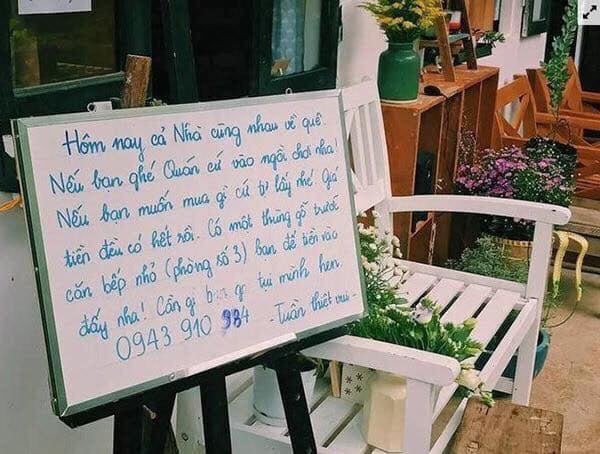 Hôm nay cả Nhà cùng nhau về quê.
Nếu bạn ghé Quán cứ vào ngồi chơi nha!
Nếu bạn muốn mua gì cứ tự lấy nhé Giá
tiền đều có hết rồi. Có một thùng gỗ trước
căn bếp nhỏ (phòng số 3) bạn để tiền vào
đấy nha! Cần gì gọi tụi mình hen
0943 910 984 - Tuần thiết vui -